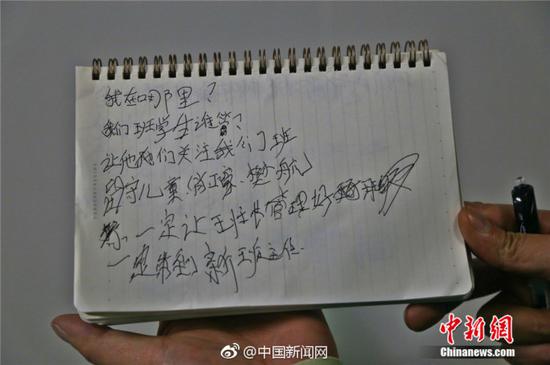 我在哪里？
我们班学生谁管？
让他们关注我们班
留守儿童 樊航
一定让王班长管理好班级
一定等到新班主任.
中新网
Chinanews.com
@中国新闻网